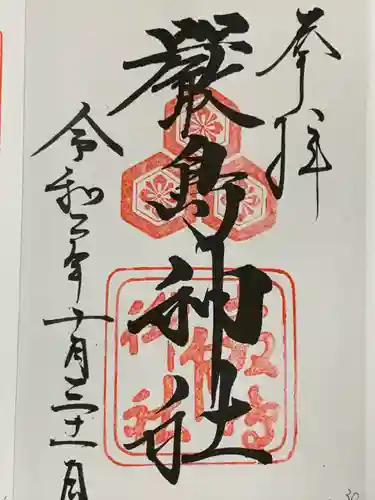 奉拝
嚴島神社
令和二年十月三十一日